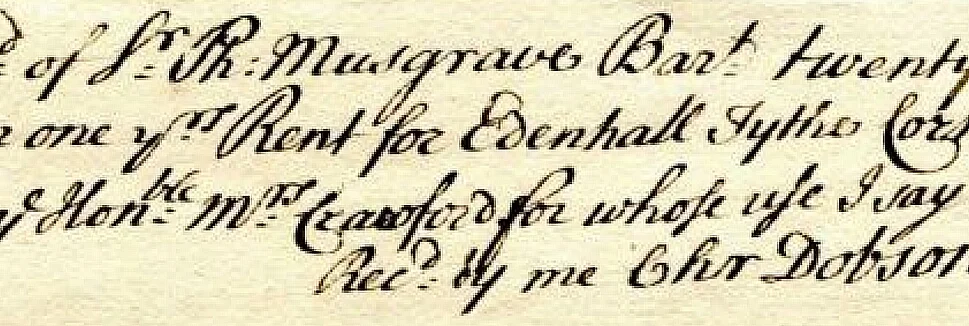 of Sr. Ph: Musgrave Bart. twenty
one yrs Rent for Edenhall Tythe Cor
ye Honble. Mrs. Crawford for whose use I say
Recd. by me Chr Dobson